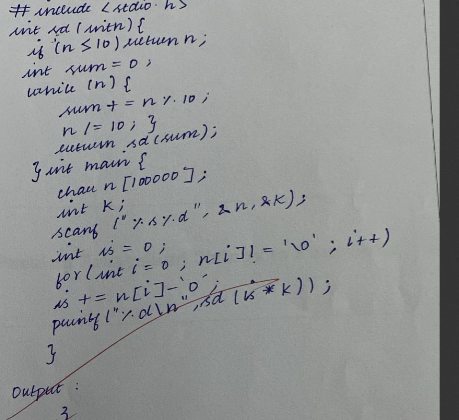 # include <stdio.h>
int sd (intn) {
if (n ≤ 10) return n;
int sum = 0;
while (n) {
sum + = n % 10;
n / = 10; }
return sd (sum);
} int main {
char n [100000];
int k;
scanf ("%s%d", &n, &k);
int is = 0;
for (int i = 0 ; n[i] ! = '\0' ; i++)
is + = n[i] - '0';
printf ("%d\n", sd (is * k));
}
Output :
3